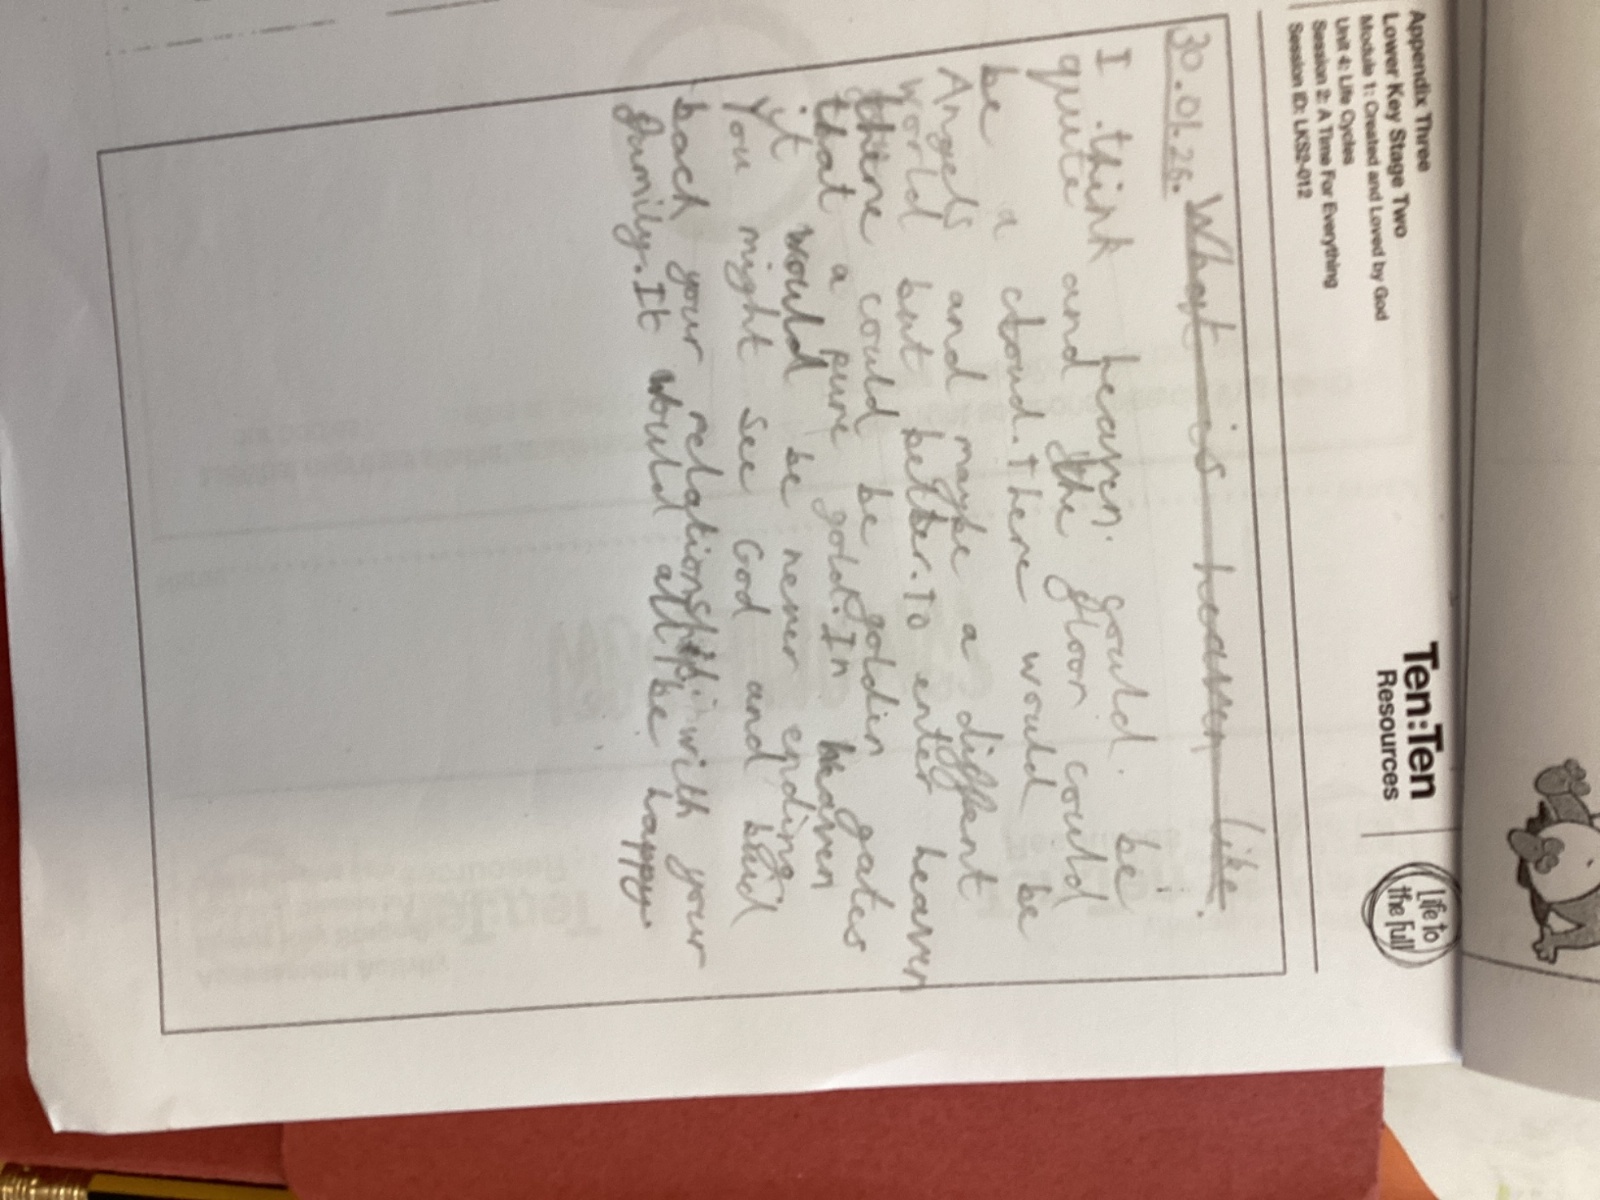 Appendix Three
Lower Key Stage Two
Module 1: Created and Loved by God
Unit 4: Life Cycles
Session 2: A Time For Everything
Session ID: LKS2-012
Ten:Ten
Resources
Life to
the Full
30.01.26. What is heaven like.
I think heaven could be
quite and the floor could
be a cloud. There would be
Angels and maybe a diffrent
world but better. To enter heaven
there could be goldin gates
that a pure gold. In heaven
it would be never ending
You might see God and buid
back your relationship with your
family. It would all be happy.